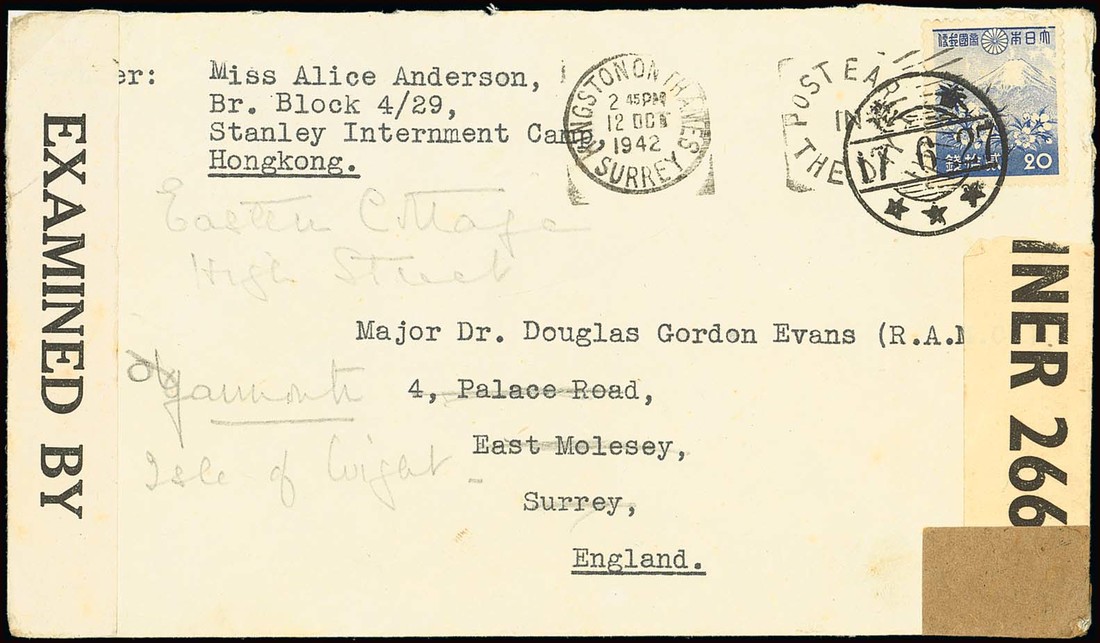 er: Miss Alice Anderson,
Br. Block 4/29,
Stanley Internment Camp,
Hongkong.
KINGSTON ON THAMES
2 45 PM
12 OCT
1942
SURREY
POST EAR
IN
THE
17.6.27
便郵國帝本日大
錢拾貳
20
EXAMINED BY
INER 266
Eastern Cottage
High Street
Major Dr. Douglas Gordon Evans (R.A.M.C
4, Palace Road,
Yarmouth
East Molesey,
Isle of Wight
Surrey,
England.